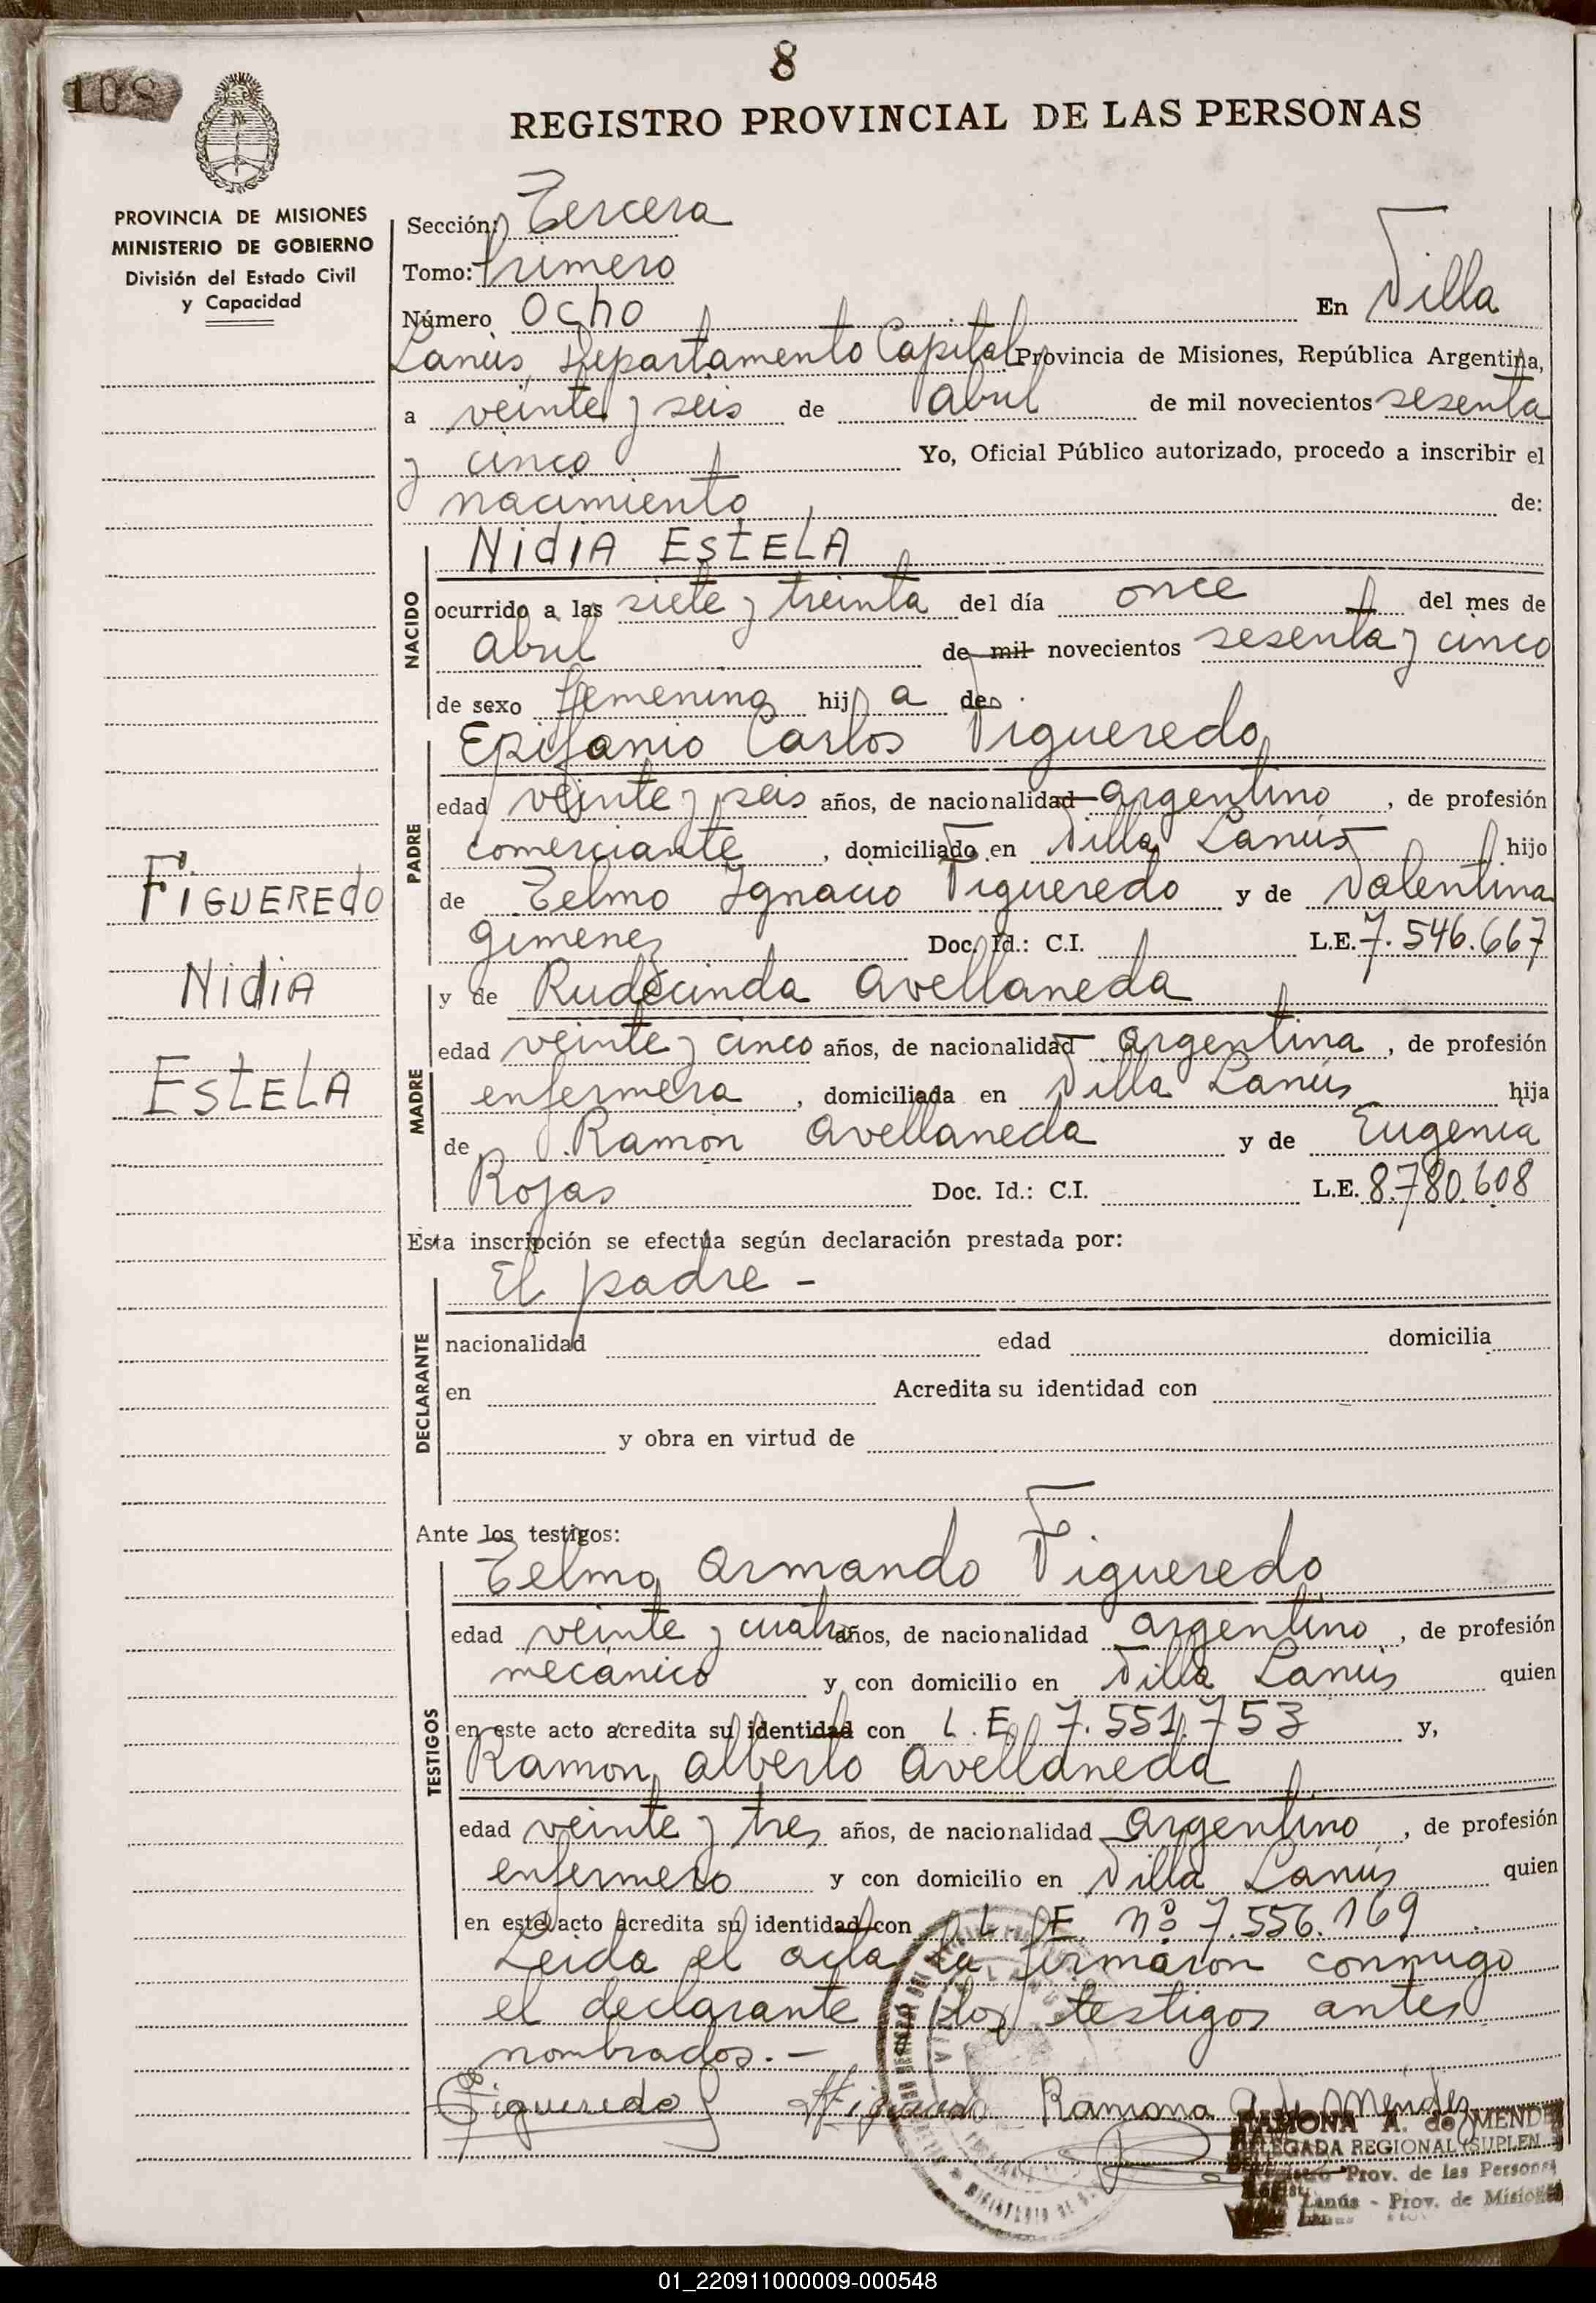 8
108
REGISTRO PROVINCIAL DE LAS PERSONAS
PROVINCIA DE MISIONES
MINISTERIO DE GOBIERNO
División del Estado Civil
y Capacidad
Sección: Tercera
Tomo: Primero
Número Ocho En Villa
Lanús, Departamento Capital Provincia de Misiones, República Argentina,
a veinte y seis de Abril de mil novecientos sesenta
y cinco Yo, Oficial Público autorizado, procedo a inscribir el
nacimiento de:
NACIDO
NidiA EStELA
ocurrido a las siete y treinta del día once del mes de
Abril de mil novecientos sesenta y cinco
de sexo femenino hij a de
PADRE
Epifanio Carlos Figueredo
edad veinte y seis años, de nacionalidad argentino, de profesión
comerciante, domiciliado en Villa Lanús hijo
de Telmo Ignacio Figueredo y de Valentina
Gimenez Doc. Id.: C.I. L.E. 7.546.667
MADRE
y de Rudecinda Avellaneda
edad veinte y cinco años, de nacionalidad argentina, de profesión
enfermera, domiciliada en Villa Lanús hija
de Ramon Avellaneda y de Eugenia
Rojas Doc. Id.: C.I. L.E. 8.780.608
FiGUEREdO
NidiA
EStELA
Esta inscripción se efectúa según declaración prestada por:
DECLARANTE
El padre -
nacionalidad edad domicilia
en Acredita su identidad con
y obra en virtud de
Ante los testigos:
TESTIGOS
Telmo Armando Figueredo
edad veinte y cuatro años, de nacionalidad argentino, de profesión
mecánico y con domicilio en Villa Lanús quien
en este acto acredita su identidad con L.E. 7.551.753 y,
Ramon Alberto Avellaneda
edad veinte y tres años, de nacionalidad Argentino, de profesión
enfermero y con domicilio en Villa Lanús quien
en este acto acredita su identidad con L.E. Nº 7.556.169
Leida el acta la firmaron conmigo
el declarante y los testigos antes
nombrados.-
Figueredo Figueredo Ramona A. de Mendez
RAMONA A. de MENDEZ
DELEGADA REGIONAL (SUPLEN.
Prov. de las Personas
Lanús - Prov. de Misiones
01_220911000009-000548